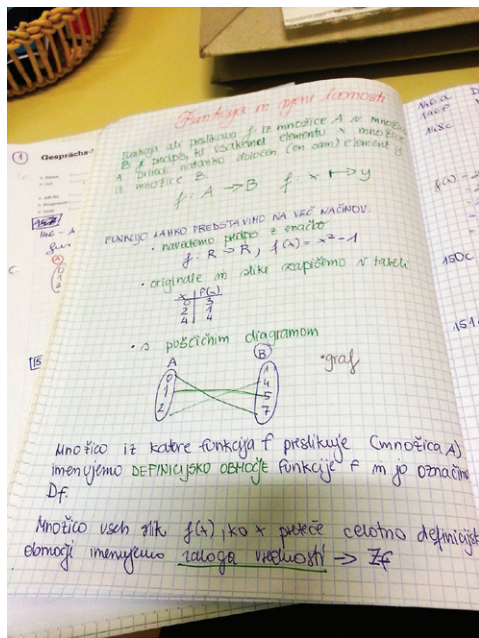 Funkcija in njene lasnosti
Funkcija ali preslikava f iz množice A v množico
B je predpis, ki vsakemu elementu x množice
A priredi natanko določen (en sam) element y
iz množice B.
f: A → B f: x ↦ y
FUNKCIJO LAHKO PREDSTAVIMO NA VEČ NAČINOV:
• navedemo predpis z značbo
f: R → R, f(x) = x² - 1
• originale in slike zapišemo v tabeli
x f(x)
0 3
2 1
4 4
• s puščičnim diagramom
• graf
A B
0 1
1 4
2 5
7
Množico iz katere funkcija f preslikuje (množica A)
imenujemo DEFINICIJSKO OBMOČJE funkcije f in jo označimo
Df.
Množico vseh slik f(x), ko x preteče celotno definicijsk
območji imenujemo zaloga vrednosti → Zf
1 Gesprächs-
146a
146f
148c
f(x) =
150c
151
15